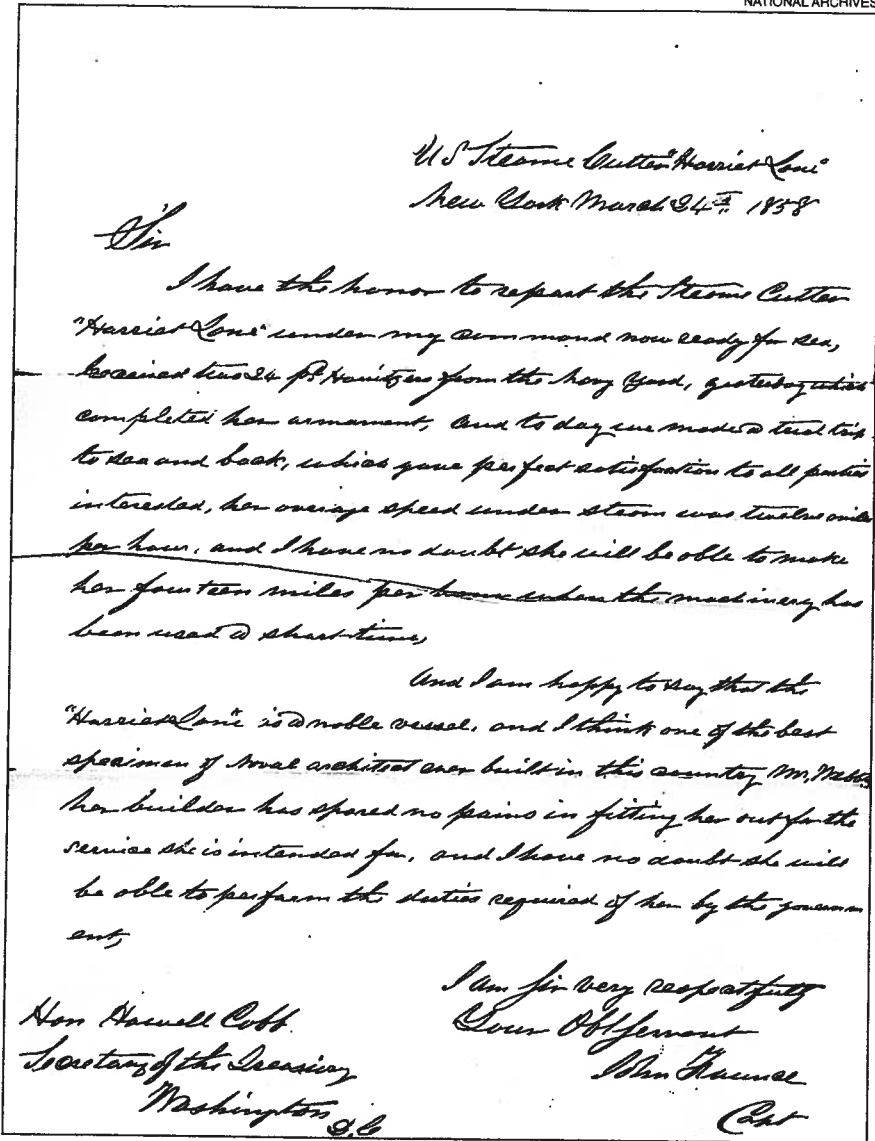 NATIONAL ARCHIVES
US Steame Cutter "Harriet Lane"
New York March 24th 1858
Sir
I have the honor to report the Steame Cutter
"Harriet Lane" under my command now ready for sea,
Received two 24 pd Howitzers from the Navy Yard, yesterday which
completed her armament, and to day we made a trial trip
to sea and back, which gave perfect satisfaction to all parties
interested, her average speed under steam was twelve miles
per hour, and I have no doubt she will be able to make
her fourteen miles per hour when the machinery has
been used a short time,
And I am happy to say that the
"Harriet Lane" is a noble vessel, and I think one of the best
specimen of Naval architect ever built in this country Mr. Webb
her builder has spared no pains in fitting her out for the
service she is intended for, and I have no doubt she will
be able to perform the duties required of her by the governm
ent,
I am Sir very respectfully
Your Obt Servant
John Faunce
Capt
Hon Howell Cobb
Secretary of the Treasury
Washington
D.C